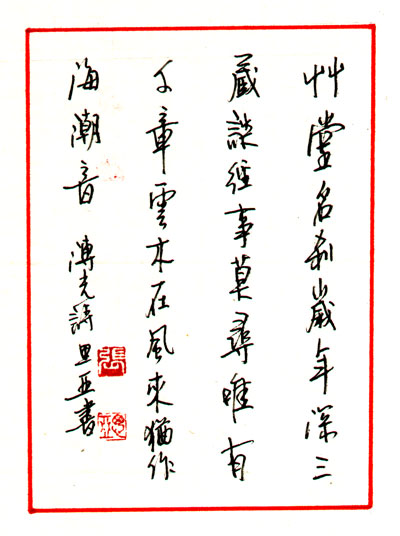 艸堂名刹歲年深三
藏談經事莫尋唯有
千章雲木在風來猶作
海潮音 溥光詩 亚書
張